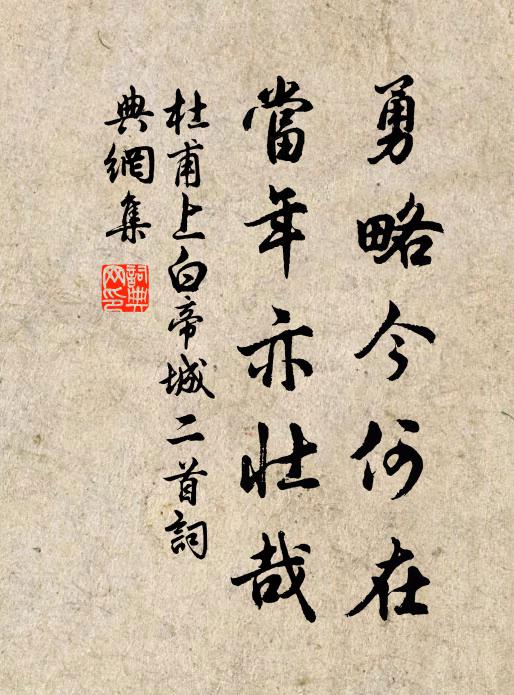 勇略今何在
當年亦壯哉
杜甫上白帝城二首詞
典網集
詞典網印